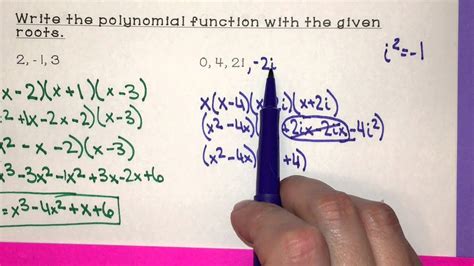 Write the polynomial function with the given
roots.
2, -1, 3
0, 4, 2i, -2i
i²=-1
x-2)(x+1)(x-3)
x²+1x-2x-2)(x-3)
x²-x-2)(x-3)
x³-3x²-1x²+3x-2x+6
=x³-4x²+x+6
x(x-4)(x i)(x+2i)
(x²-4x)( +2ix-2ix-4i²)
(x²-4x)( +4)